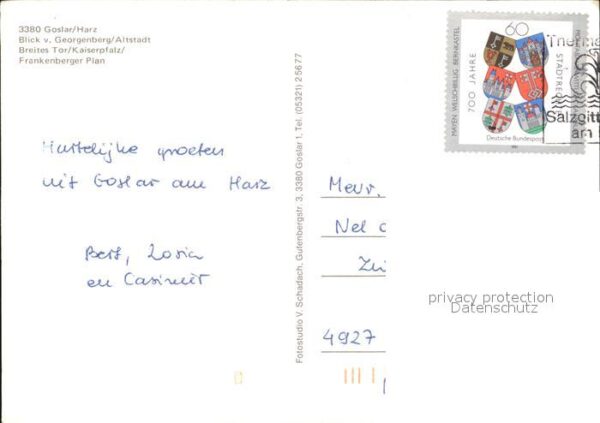 3380 Goslar/Harz
Blick v. Georgenberg/Altstadt
Breites Tor/Kaiserpfalz/
Frankenberger Plan
Hartelijke groeten
uit Goslar am Harz
Bert, Zosia
en Casimir
Fotostudio V. Schadach, Gutenbergstr. 3, 3380 Goslar 1, Tel. (05321) 25677
60
700 JAHRE
MAYEN WELSCHBILLIG BERNKASTEL
STADTRE
Deutsche Bundespost
Therma
Salzgitt
am
Mevr.
Nel
4927
privacy protection
Datenschutz